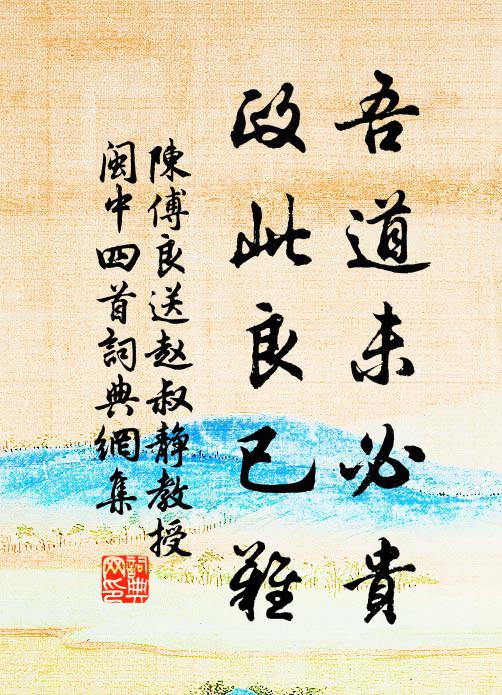 吾道未必貴
政此良已難
陳傅良送赵叔靜教授
閩中四首詞典網集
詞典网印